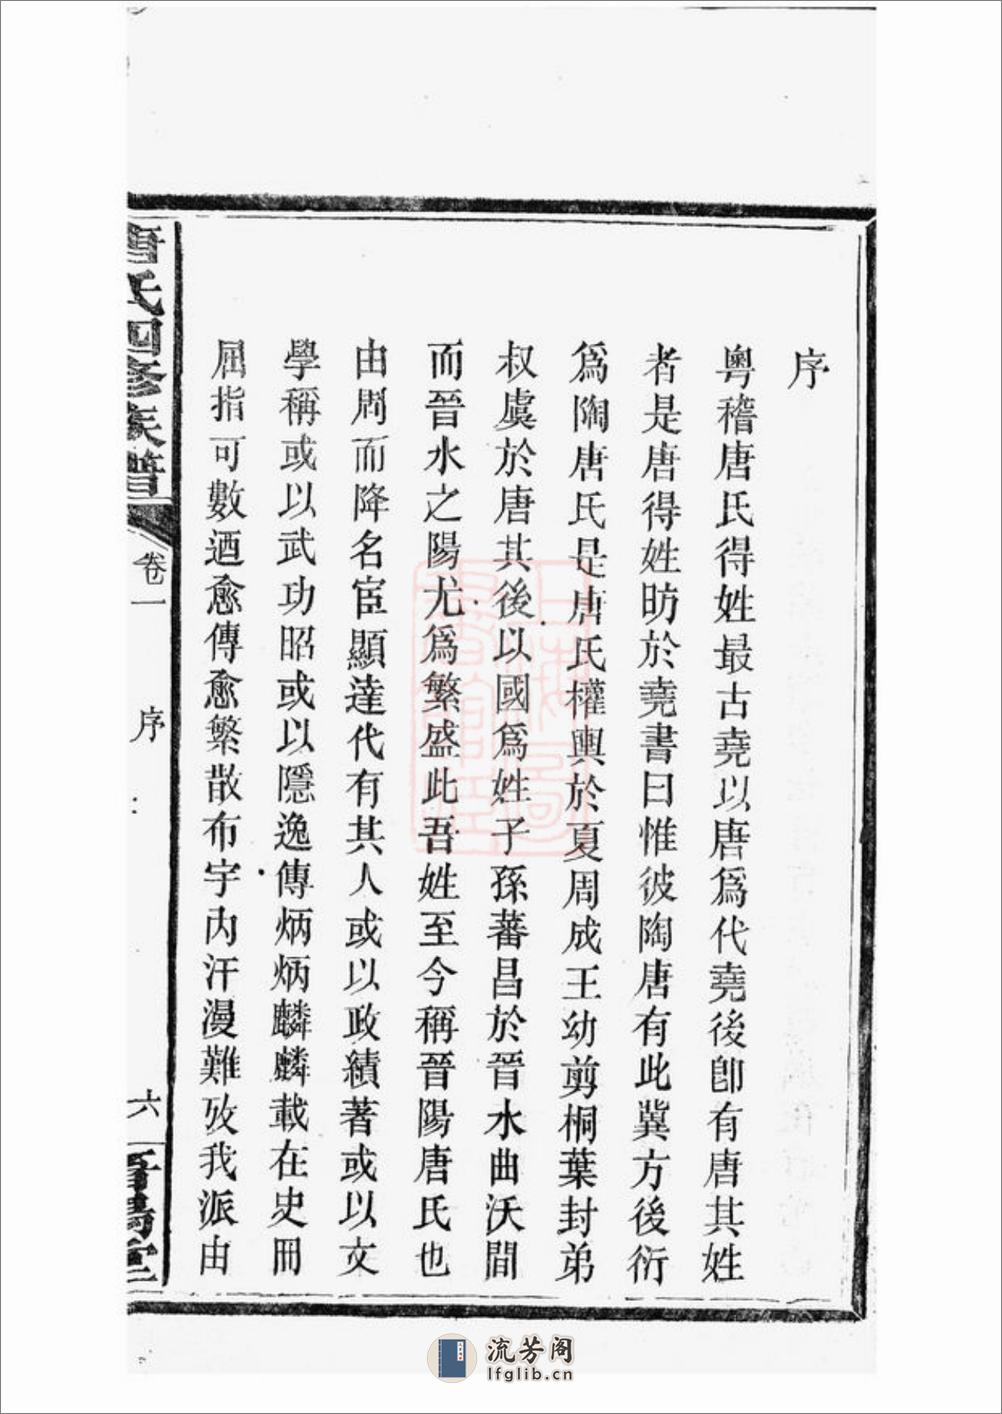 序
粵稽唐氏得姓最古堯以唐爲代堯後卽有唐其姓
者是唐得姓昉於堯書曰惟彼陶唐有此冀方後衍
爲陶唐氏是唐氏權輿於夏周成王幼剪桐葉封弟
叔虞於唐其後以國爲姓子孫蕃昌於晉水曲沃間
而晉水之陽尤爲繁盛此吾姓至今稱晉陽唐氏也
由周而降名宦顯達代有其人或以政績著或以文
學稱或以武功昭或以隱逸傳炳炳麟麟載在史冊
屈指可數迺愈傳愈繁散布宇內汗漫難攷我派由
唐氏四修族譜
卷一
序
六
晉陽堂
流芳阁
lfglib.cn